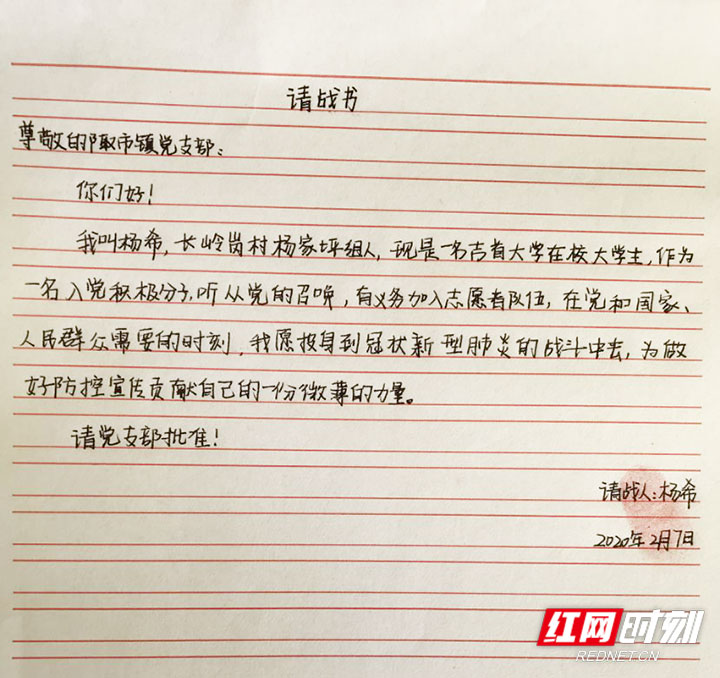 请战书
尊敬的陬市镇党支部：
你们好！
我叫杨希，长岭岗村杨家坪组人，现是一名吉首大学在校大学生，作为
一名入党积极分子，听从党的召唤，有义务加入志愿者队伍，在党和国家、
人民群众需要的时刻，我愿投身到冠状新型肺炎的战斗中去，为做
好防控宣传贡献自己的一份微薄的力量。
请党支部批准！
请战人：杨希
2020年2月7日
红网时刻
REDNET.CN